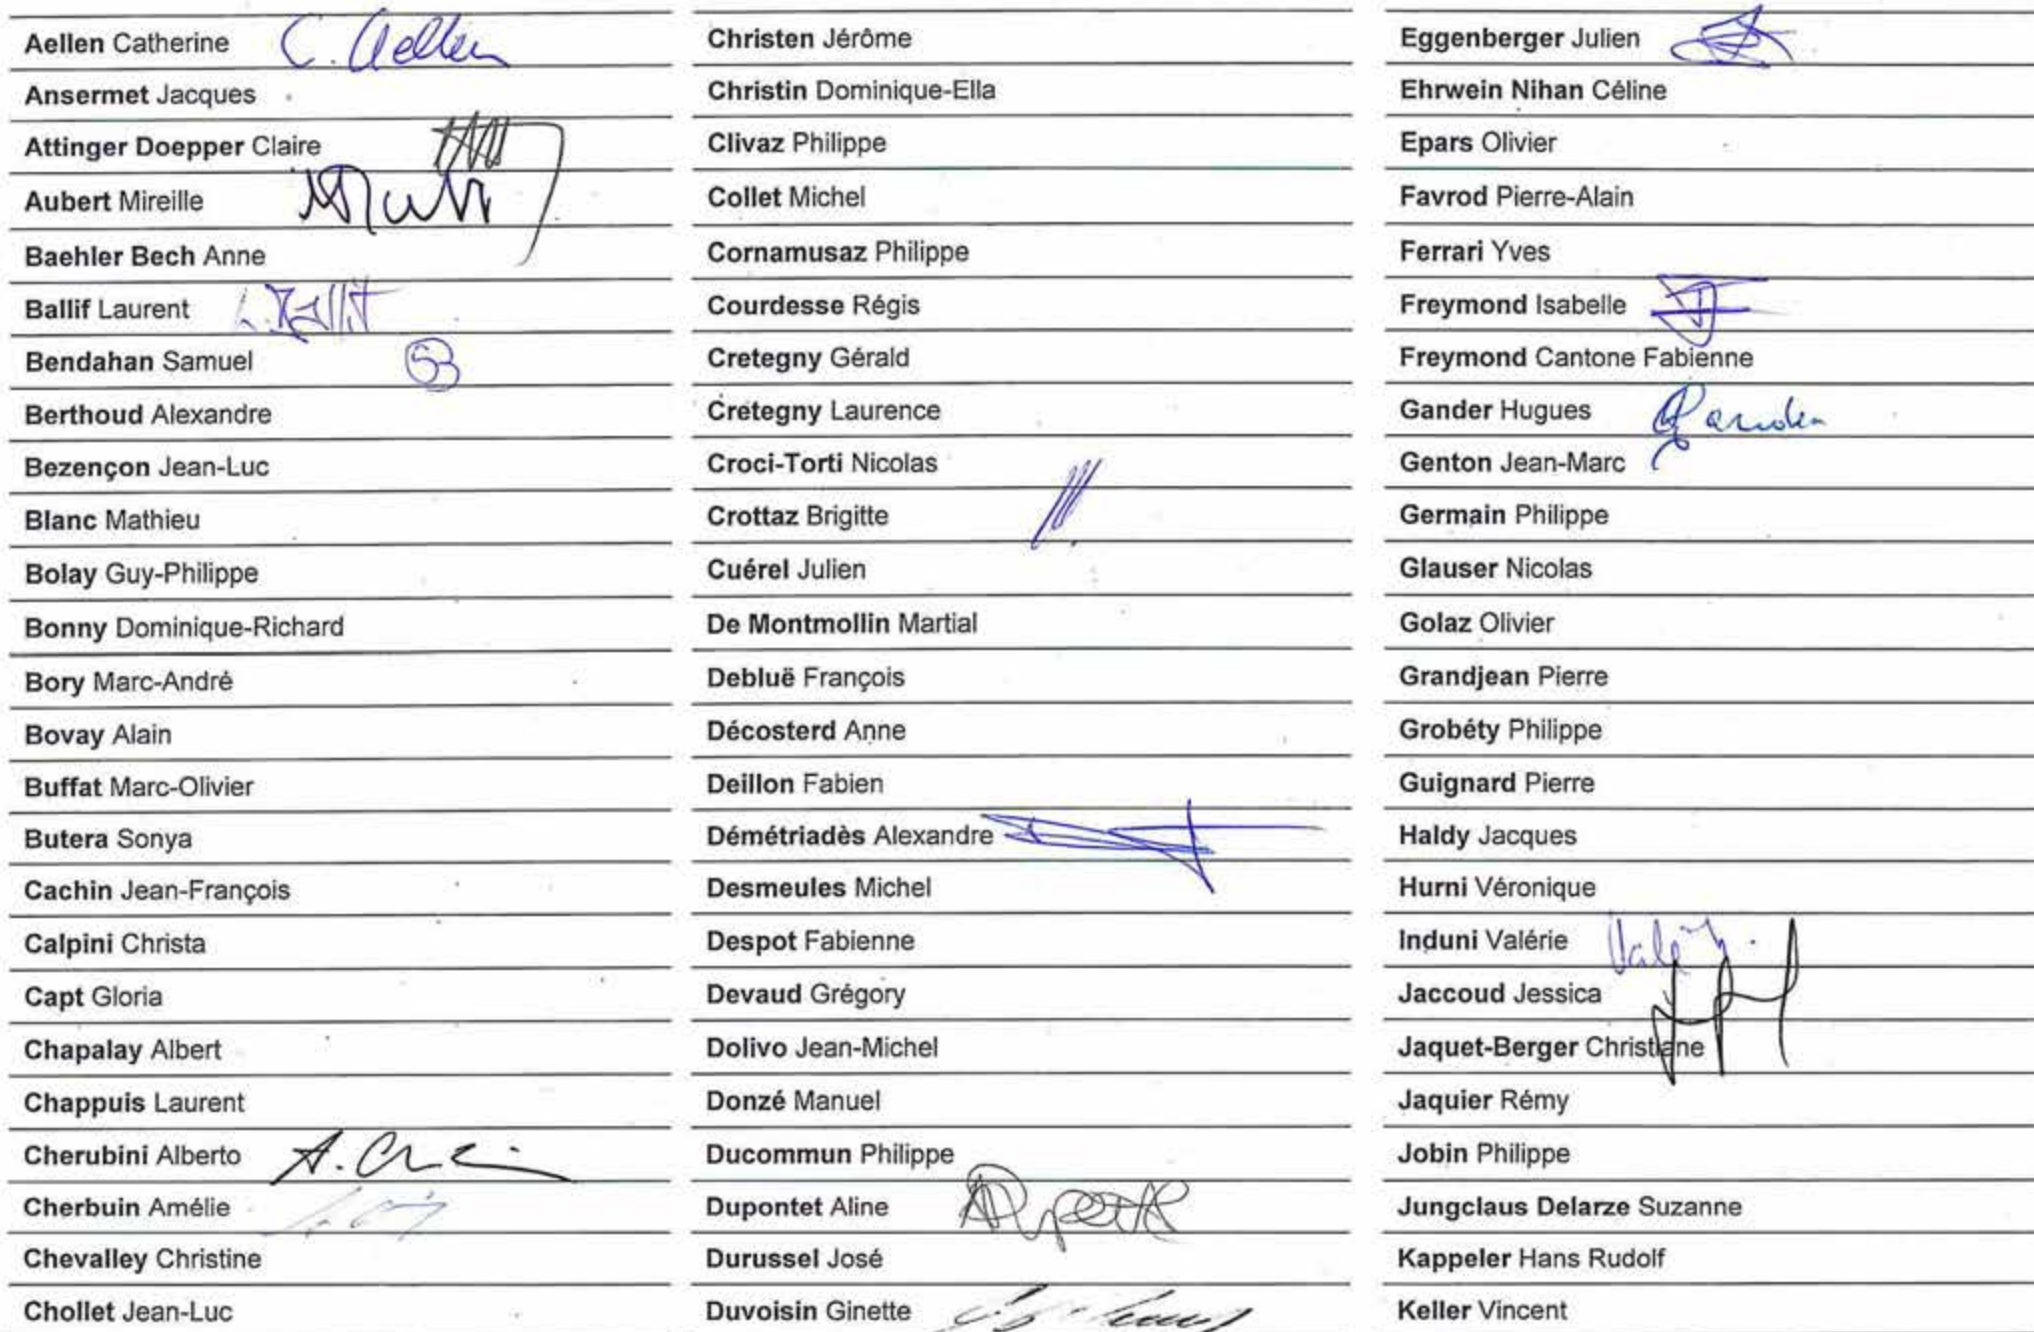 Aellen Catherine C. Aellen
Ansermet Jacques
Attinger Doepper Claire
Aubert Mireille
Baehler Bech Anne
Ballif Laurent L. Ballif
Bendahan Samuel SB
Berthoud Alexandre
Bezençon Jean-Luc
Blanc Mathieu
Bolay Guy-Philippe
Bonny Dominique-Richard
Bory Marc-André
Bovay Alain
Buffat Marc-Olivier
Butera Sonya
Cachin Jean-François
Calpini Christa
Capt Gloria
Chapalay Albert
Chappuis Laurent
Cherubini Alberto
Cherbuin Amélie
Chevalley Christine
Chollet Jean-Luc
Christen Jérôme
Christin Dominique-Ella
Clivaz Philippe
Collet Michel
Cornamusaz Philippe
Courdesse Régis
Cretegny Gérald
Cretegny Laurence
Croci-Torti Nicolas
Crottaz Brigitte
Cuérel Julien
De Montmollin Martial
Debluë François
Décosterd Anne
Deillon Fabien
Démétriadès Alexandre
Desmeules Michel
Despot Fabienne
Devaud Grégory
Dolivo Jean-Michel
Donzé Manuel
Ducommun Philippe
Dupontet Aline
Durussel José
Duvoisin Ginette
Eggenberger Julien
Ehrwein Nihan Céline
Epars Olivier
Favrod Pierre-Alain
Ferrari Yves
Freymond Isabelle
Freymond Cantone Fabienne
Gander Hugues Gander
Genton Jean-Marc
Germain Philippe
Glauser Nicolas
Golaz Olivier
Grandjean Pierre
Grobéty Philippe
Guignard Pierre
Haldy Jacques
Hurni Véronique
Induni Valérie
Jaccoud Jessica
Jaquet-Berger Christiane
Jaquier Rémy
Jobin Philippe
Jungclaus Delarze Suzanne
Kappeler Hans Rudolf
Keller Vincent